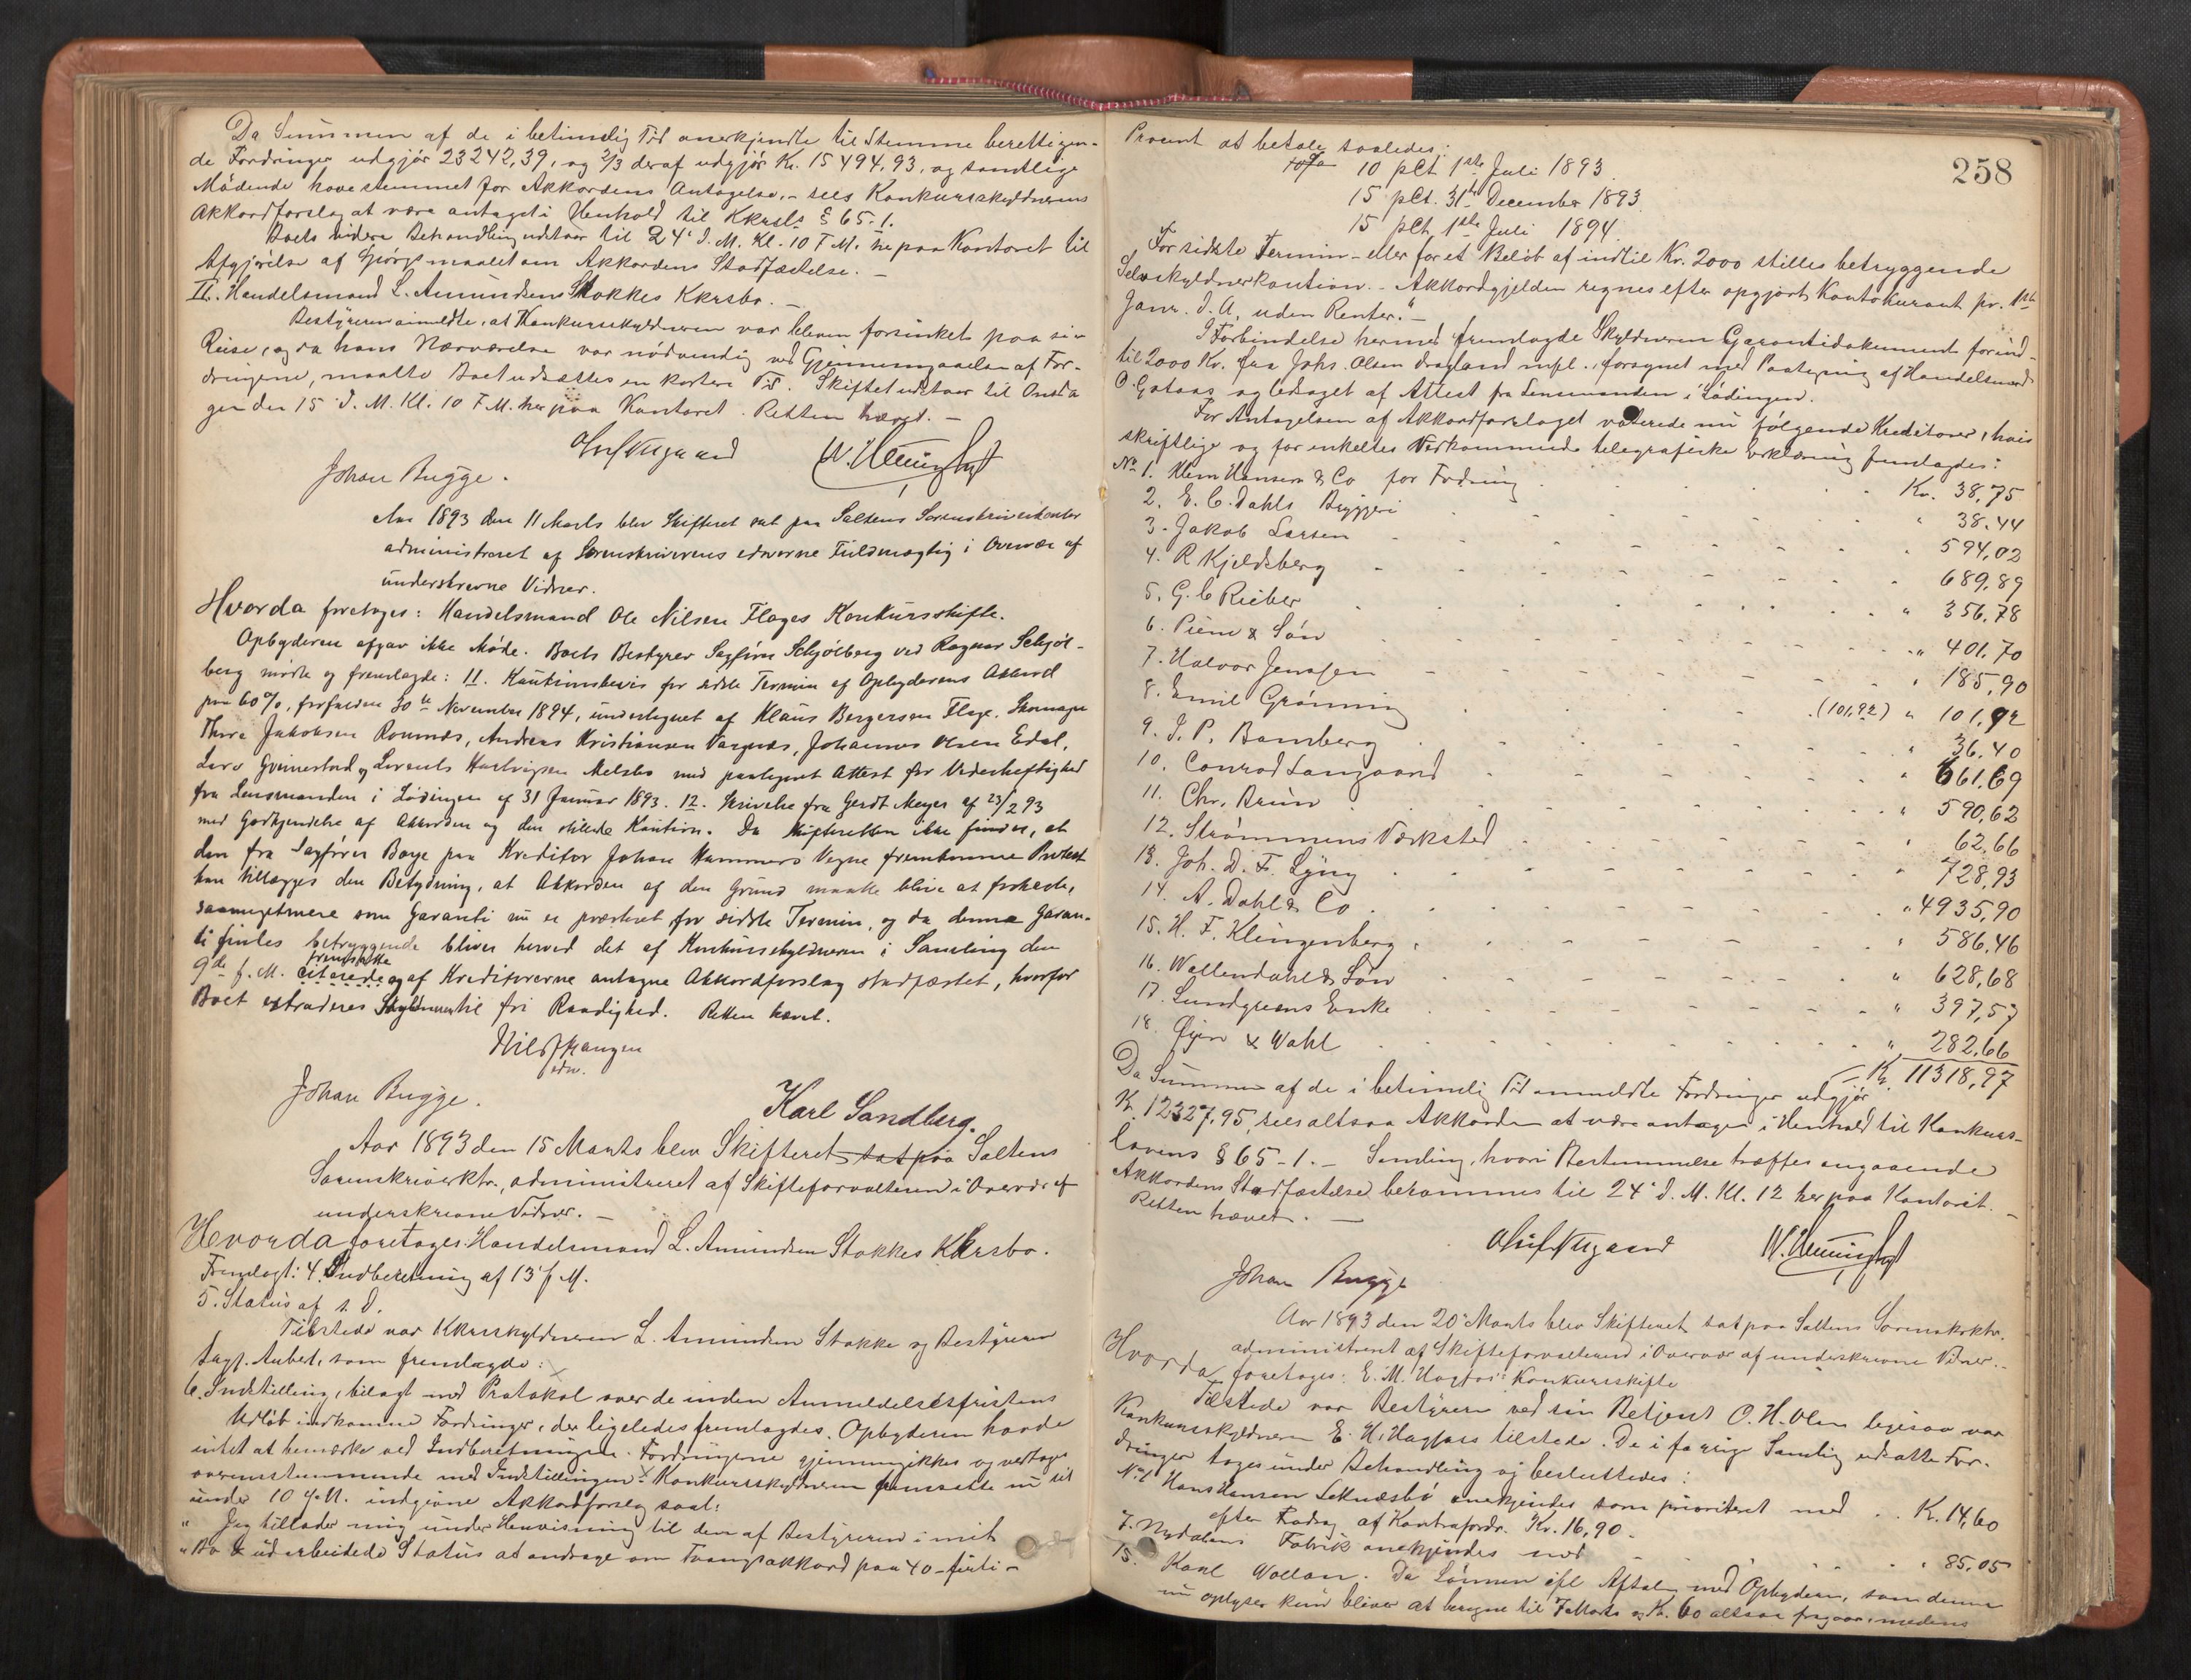 Da Summen af de i betimelig Tid anerkjendte til Stemme berettigen-
de Fordringer udgjør 23242,39, og 2/3 deraf udgjør Kr. 15494,93, og samtlige
Mødende have stemmet for Akkordens Antagelse, - sees Konkursskyldnerens
Akkordforslag at være antaget i Henhold til Kkrsls § 65-1.
Boets videre Behandling udstaar til 24' d. M. Kl. 10 F.M. her paa Kontoret til
Afgjørelse af Spørgsmaalet om Akkordens Stadfæstelse. -
II. Handelsmand L. Amundsens Stokkes Kkrsbo. -
Bestyreren anmeldte, at Konkursskyldneren var bleven forsinket paa sin
Reise, og da hans Nærværelse var nødvendig ved Gjennemgaaelsen af For-
dringerne, maatte Boet udsættes en kortere Tid. Skiftet udstaar til Onsda
gen den 15 d. M. Kl. 10 F.M. her paa Kontoret. Retten hævet. -
Johan Bugge.
Aar 1893 den 11 Marts blev Skifteret sat paa Saltens Sorenskriverkontor
administreret af Sorenskriverens edsvorne Fuldmægtig i Overvær af
underskrevne Vidner.
Hvorda foretoges: Handelsmand Ole Nilsen Flages Konkursskifte.
Opbyderen afgav ikke Møde. Boets Bestyrer Sagfører Schjølberg ved Ragnar Schjøl-
berg mødte og fremlagde: 11. Kautionsbevis for sidste Termin af Opbyderens Akkord
paa 60%, forfalden 30te November 1894, undertegnet af Klaus Bergersen Flage, Skomager
Thore Jakobsen Rounæs, Andreas Kristiansen Vargnæs, Johannes Olsen Edal,
Lars Grimestad og Lorents Hartvigsen Melsbo med paategnet Attest for Vederheftighed
fra Lensmanden i Lødingen af 31 Januar 1893. 12. Skrivelse fra Gerdt Meyer af 23/2 93
med Godkjendelse af Akkorden og den stillede Kaution. Da Skifteretten ikke finder, at
den fra Sagfører Boye paa Kreditor Johan Hammers Vegne fremkomne Protest
kan tillægges den Betydning, at Akkorden af den Grund maatte blive at forkaste,
saameget mere som Garanti nu er præsteret for sidste Termin, og da denne Garan-
ti findes betryggende bliver herved det af Konkursskyldneren i Samling den
fremsatte
9de f. M. citerede og af Kreditorerne antagne Akkordforslag stadfæstet, hvorfor
Boet extraderes Skyldneren til fri Raadighed. Retten hævet.
edsv.
Johan Bugge.
Karl Sandberg.
Aar 1893 den 15 Marts blev Skifteret sat paa Saltens
Sorenskriverktr., administreret af Skifteforvalteren i Overvær af
underskrevne Vidner. -
Hvorda foretoges: Handelsmand L. Amundsen Stokkes Kkrsbo.
Fremlagt: 4. Indberetning af 13' f. M.
5. Status af s. d.
Tilstede var Kkrsskyldneren L. Amundsen Stokke og Bestyreren
Sagf. Aubert, som fremlagde:
6. Indstilling, bilagt med Protokol over de inden Anmeldelsesfristens
Udløb indkomne Fordringer, der ligeledes fremlagdes. Opbyderen havde
intet at bemærke ved Indberetningen. Fordringerne gjennemgikkes og vedtoges
overensstemmende med Indstillingen. Konkursskyldneren fremsatte nu sit
under 10 d. M. indgivne Akkordforslag saal:
" Jeg tillader mig under Henvisning til den af Bestyreren i mit
" Bo udarbeidede Status at andrage om Tvangsakkord paa 40 - firti -
258
Procent at betale saaledes:
10 pCt 1ste Juli 1893.
15 pCt. 31te December 1893
15 pCt 1ste Juli 1894.
For sidste Termin - eller for et Beløb af indtil Kr. 2000 stilles betryggende
Selvskyldnerkaution. - Akkordgjelden regnes efter opgjort Kontokurant pr. 1ste
Janr. d. A. uden Renter." -
I Forbindelse hermed fremlagde Skyldneren Garantidokument for ind-
til 2000 Kr. fra Johs. Olsen Dragland mfl., forsynet med Paategning af Handelsmand
O. Gotaas og ledsaget af Attest fra Lensmanden i Lødingen.
For Antagelsen af Akkordforslaget voterede nu følgende Kreditorer, hvis
skriftlige og for enkeltes Vedkommende telegrafiske Erklæring fremlagdes:
No 1. Klem Hansen & Co for Fordring Kr. 38,75
2. E. C. Dahls Bryggeri " 38.44
3. Jakob Larsen " 594,02
4. R Kjeldsberg " 689,89
5. G. C Rieber " 356,78
6. Piene & Søn " 401,70
7. Halvor Jenssen " 185,90
8. Emil Grønning (101,92) " 101,92
9. J. P. Bamberg " 36.40
10. Conrad Langaard " 661,69
11. Chr. Bruun " 590,62
12. Strømmens Værksted " 62,66
13. Joh. D. F. Lyng " 728,93
14. A. Dahl & Co " 4935,90
15. H. F. Klingenberg " 586,46
16. Wollendahl & Søn " 628,68
17. Lundgreens Enke " 397,57
18. Øyen & Wahl " 282,66
= Kr. 11318,97
Da Summen af de i betimelig Tid anmeldte Fordringer udgjør
Kr. 12327,95, sees altsaa Akkorden at være antagen i Henhold til Konkurs-
lovens § 65-1. - Samling, hvori Bestemmelse træffes angaaende
Akkordens Stadfæstelse, berammes til 24' d. M. Kl. 12 her paa Kontoret. -
Retten hævet. -
Johan Bugge
Aar 1893 den 20' Marts blev Skifteret sat paa Saltens Sorenskrktr.
administreret af Skifteforvalteren i Overvær af underskrevne Vidner. -
Hvorda foretoges: E. M. Hagfors' Konkursskifte
Tilstede var Bestyreren ved sin Betjent O. H. Olsen ligesaa var
Konkursskyldneren E. M. Hagfors tilstede. De i forrige Samling udsatte For-
dringer toges under Behandling og besluttedes:
No 1 Hans Hansen Leknæsbø anerkjendes som prioriteret med Kr. 14,60
efter Fradrag af Kontrafordr. Kr. 16,90.
7. Nydalens Fabrik anerkjendes med " 85.05
15. Karl Wollan. Da Lønnen ifl Aftale med Opbyderen, som denne
nu oplyser kun bliver at beregne til 7 Marts og Kr. 60 altsaa fragaar, medens